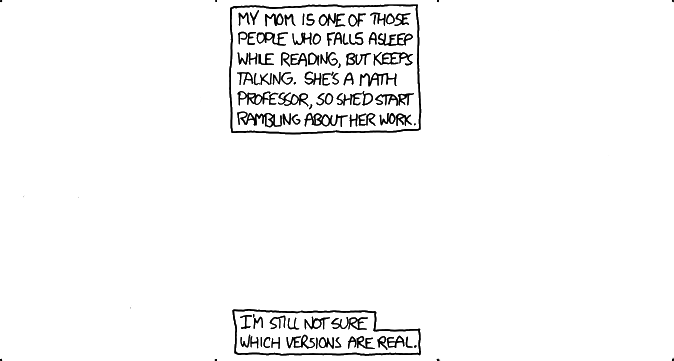 MY MOM IS ONE OF THOSE
PEOPLE WHO FALLS ASLEEP
WHILE READING, BUT KEEPS
TALKING. SHE'S A MATH
PROFESSOR, SO SHE'D START
RAMBLING ABOUT HER WORK.
I'M STILL NOT SURE
WHICH VERSIONS ARE REAL.